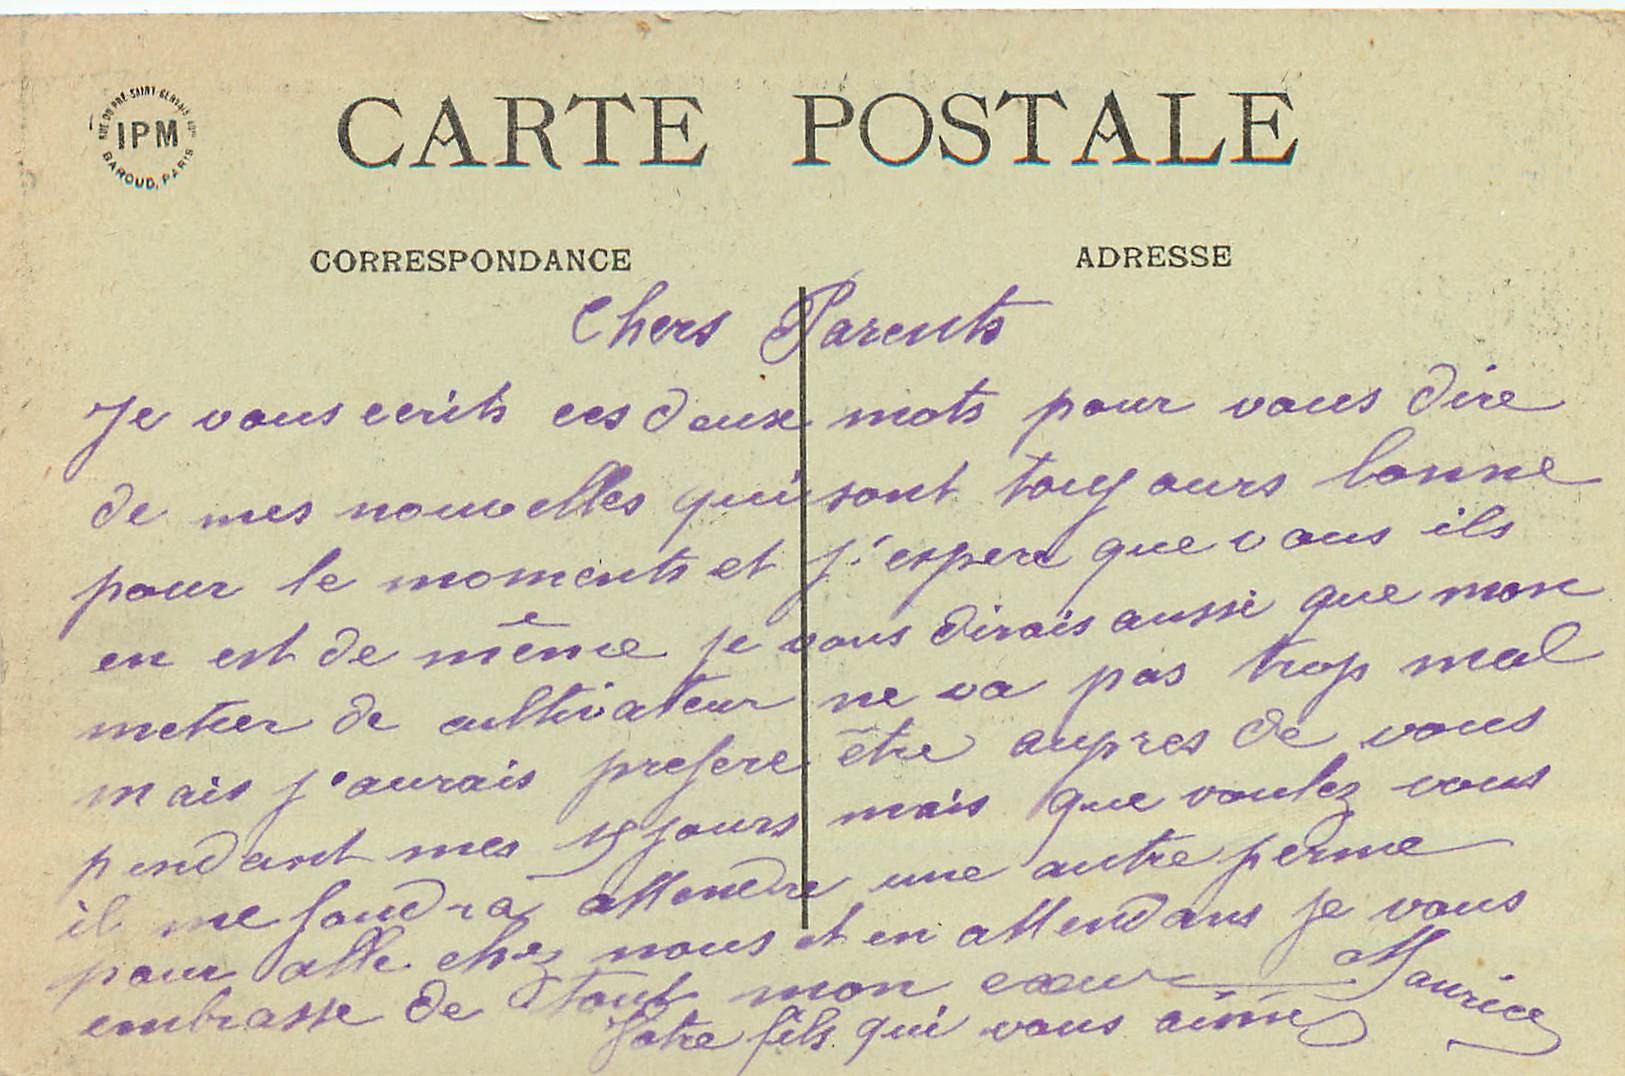 RUE DU PRÉ-SAINT-GERVAIS
IPM
BAROUD, PARIS
CARTE POSTALE
CORRESPONDANCE
ADRESSE
Chers Parents
Je vous ecrits ces deux mots pour vous dire
de mes nouvelles qui sont toujours bonne
pour le moments et j'espere que vous ils
en est de même je vous dirais aussi que mon
metier de cultivateur ne va pas trop mal
mais j'aurais prefere être aupres de vous
pendant mes 15 jours mais que voulez vous
il me foudra attendre une autre perme
pour alle chez nous et en attendans je vous
embrasse de tout mon cœur Maurice
Votre fils qui vous aime